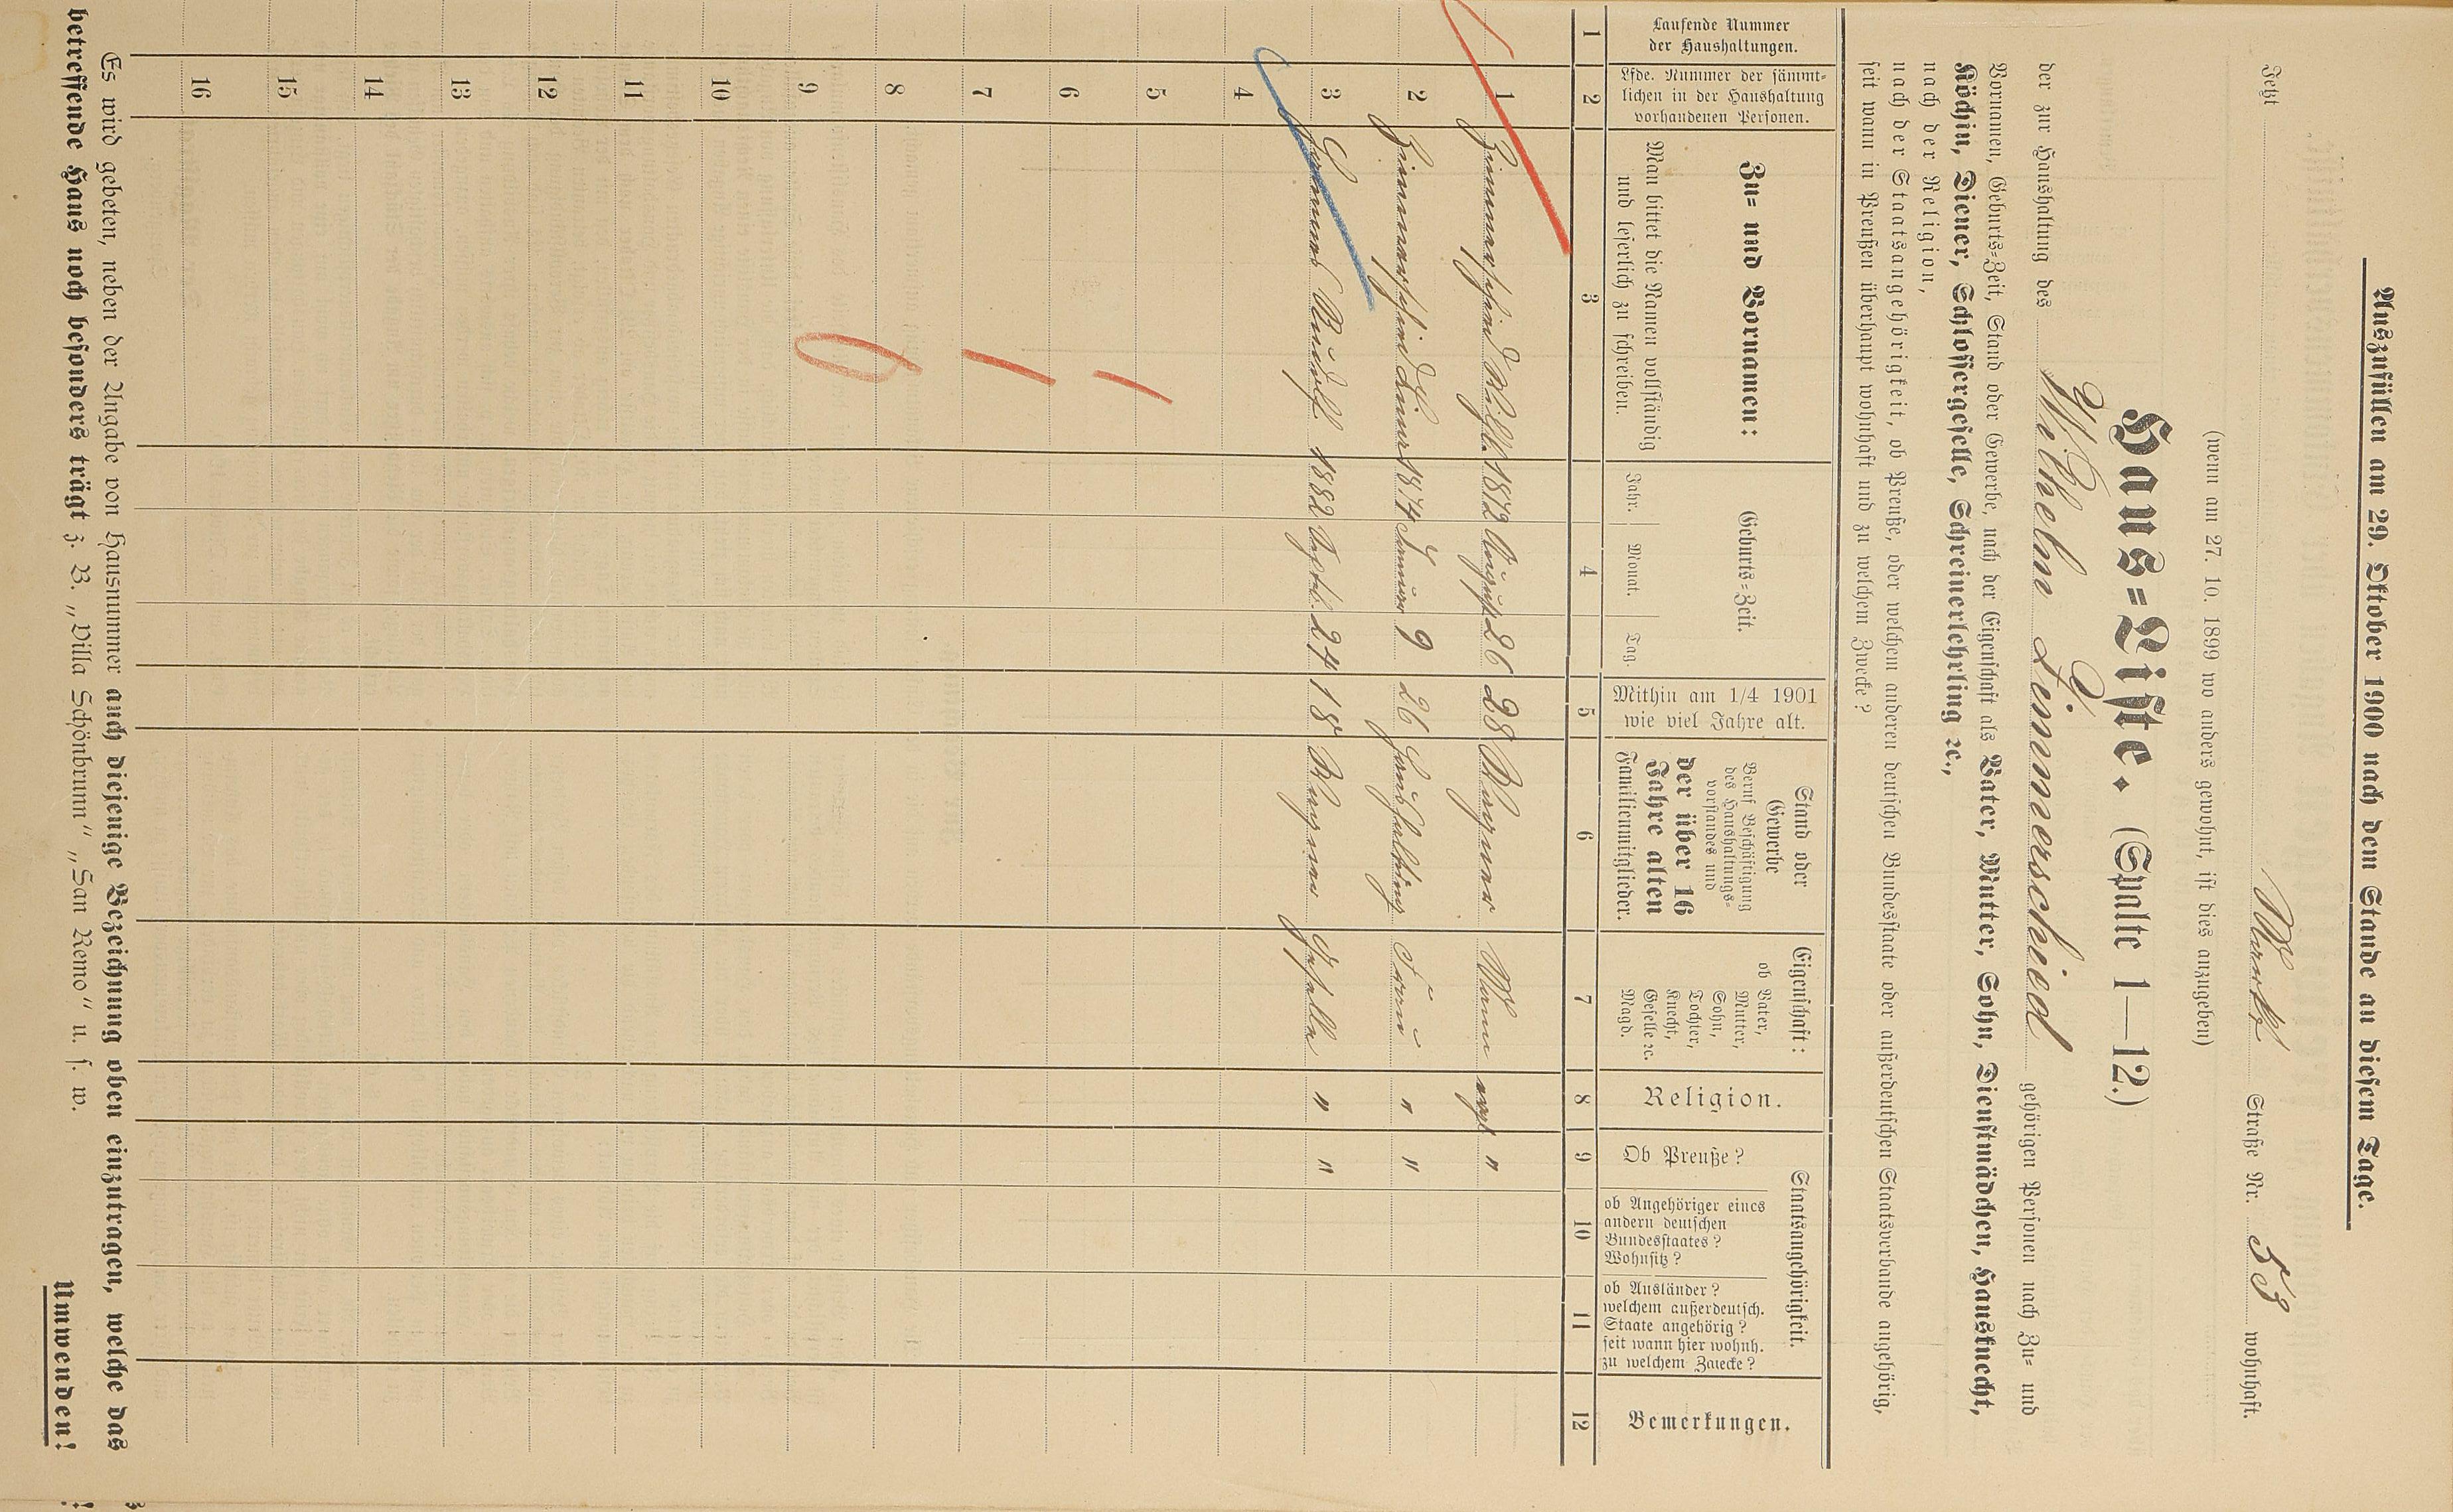 Auszufüllen am 29. Oktober 1900 nach dem Stande an diesem Tage.
Jetzt Markt Straße Nr. 53 wohnhaft.
(wenn am 27. 10. 1899 wo anders gewohnt, ist dies anzugeben)
Haus=Liste. (Spalte 1—12.)
der zur Haushaltung des Wilhelm Zimmerschied gehörigen Personen nach Zu= und
Vornamen, Geburts=Zeit, Stand oder Gewerbe, nach der Eigenschaft als Vater, Mutter, Sohn, Dienstmädchen, Hausknecht,
Köchin, Diener, Schlossergeselle, Schreinerlehrling ꝛc.,
nach der Religion,
nach der Staatsangehörigkeit, ob Preuße, oder welchem anderen deutschen Bundesstaate oder außerdeutschen Staatsverbande angehörig,
seit wann in Preußen überhaupt wohnhaft und zu welchem Zwecke?
Laufende Nummer
der Haushaltungen.
Lfde. Nummer der sämmt=
lichen in der Haushaltung
vorhandenen Personen.
Zu= und Vornamen:
Man bittet die Namen vollständig
und leserlich zu schreiben.
Geburts=Zeit.
Jahr. Monat. Tag.
Mithin am 1/4 1901
wie viel Jahre alt.
Stand oder
Gewerbe
Beruf Beschäftigung
des Haushaltungs=
vorstandes und
der über 16
Jahre alten
Familienmitglieder.
Eigenschaft:
ob Vater,
Mutter,
Sohn,
Tochter,
Knecht,
Geselle ꝛc.
Magd.
Religion.
Staatsangehörigkeit.
Ob Preuße?
ob Angehöriger eines
andern deutschen
Bundesstaates?
Wohnsitz?
ob Ausländer?
welchem außerdeutsch.
Staate angehörig?
seit wann hier wohnh.
zu welchem Zwecke?
Bemerkungen.
1 2 3 4 5 6 7 8 9 10 11 12
1 Zimmerschied Wilh. 1872 August 26 28 Mann evgl "
2 Zimmerschied 1874 Januar 9 26 Haushaltung Frau " "
3 Rudolf 1882 24 18 " "
4
5
6
7
8
9
10
11
12
13
14
15
16
Es wird gebeten, neben der Angabe von Hausnummer auch diejenige Bezeichnung oben einzutragen, welche das
betreffende Haus noch besonders trägt z. B. „Villa Schönbrunn" „San Remo" u. s. w.
Umwenden!